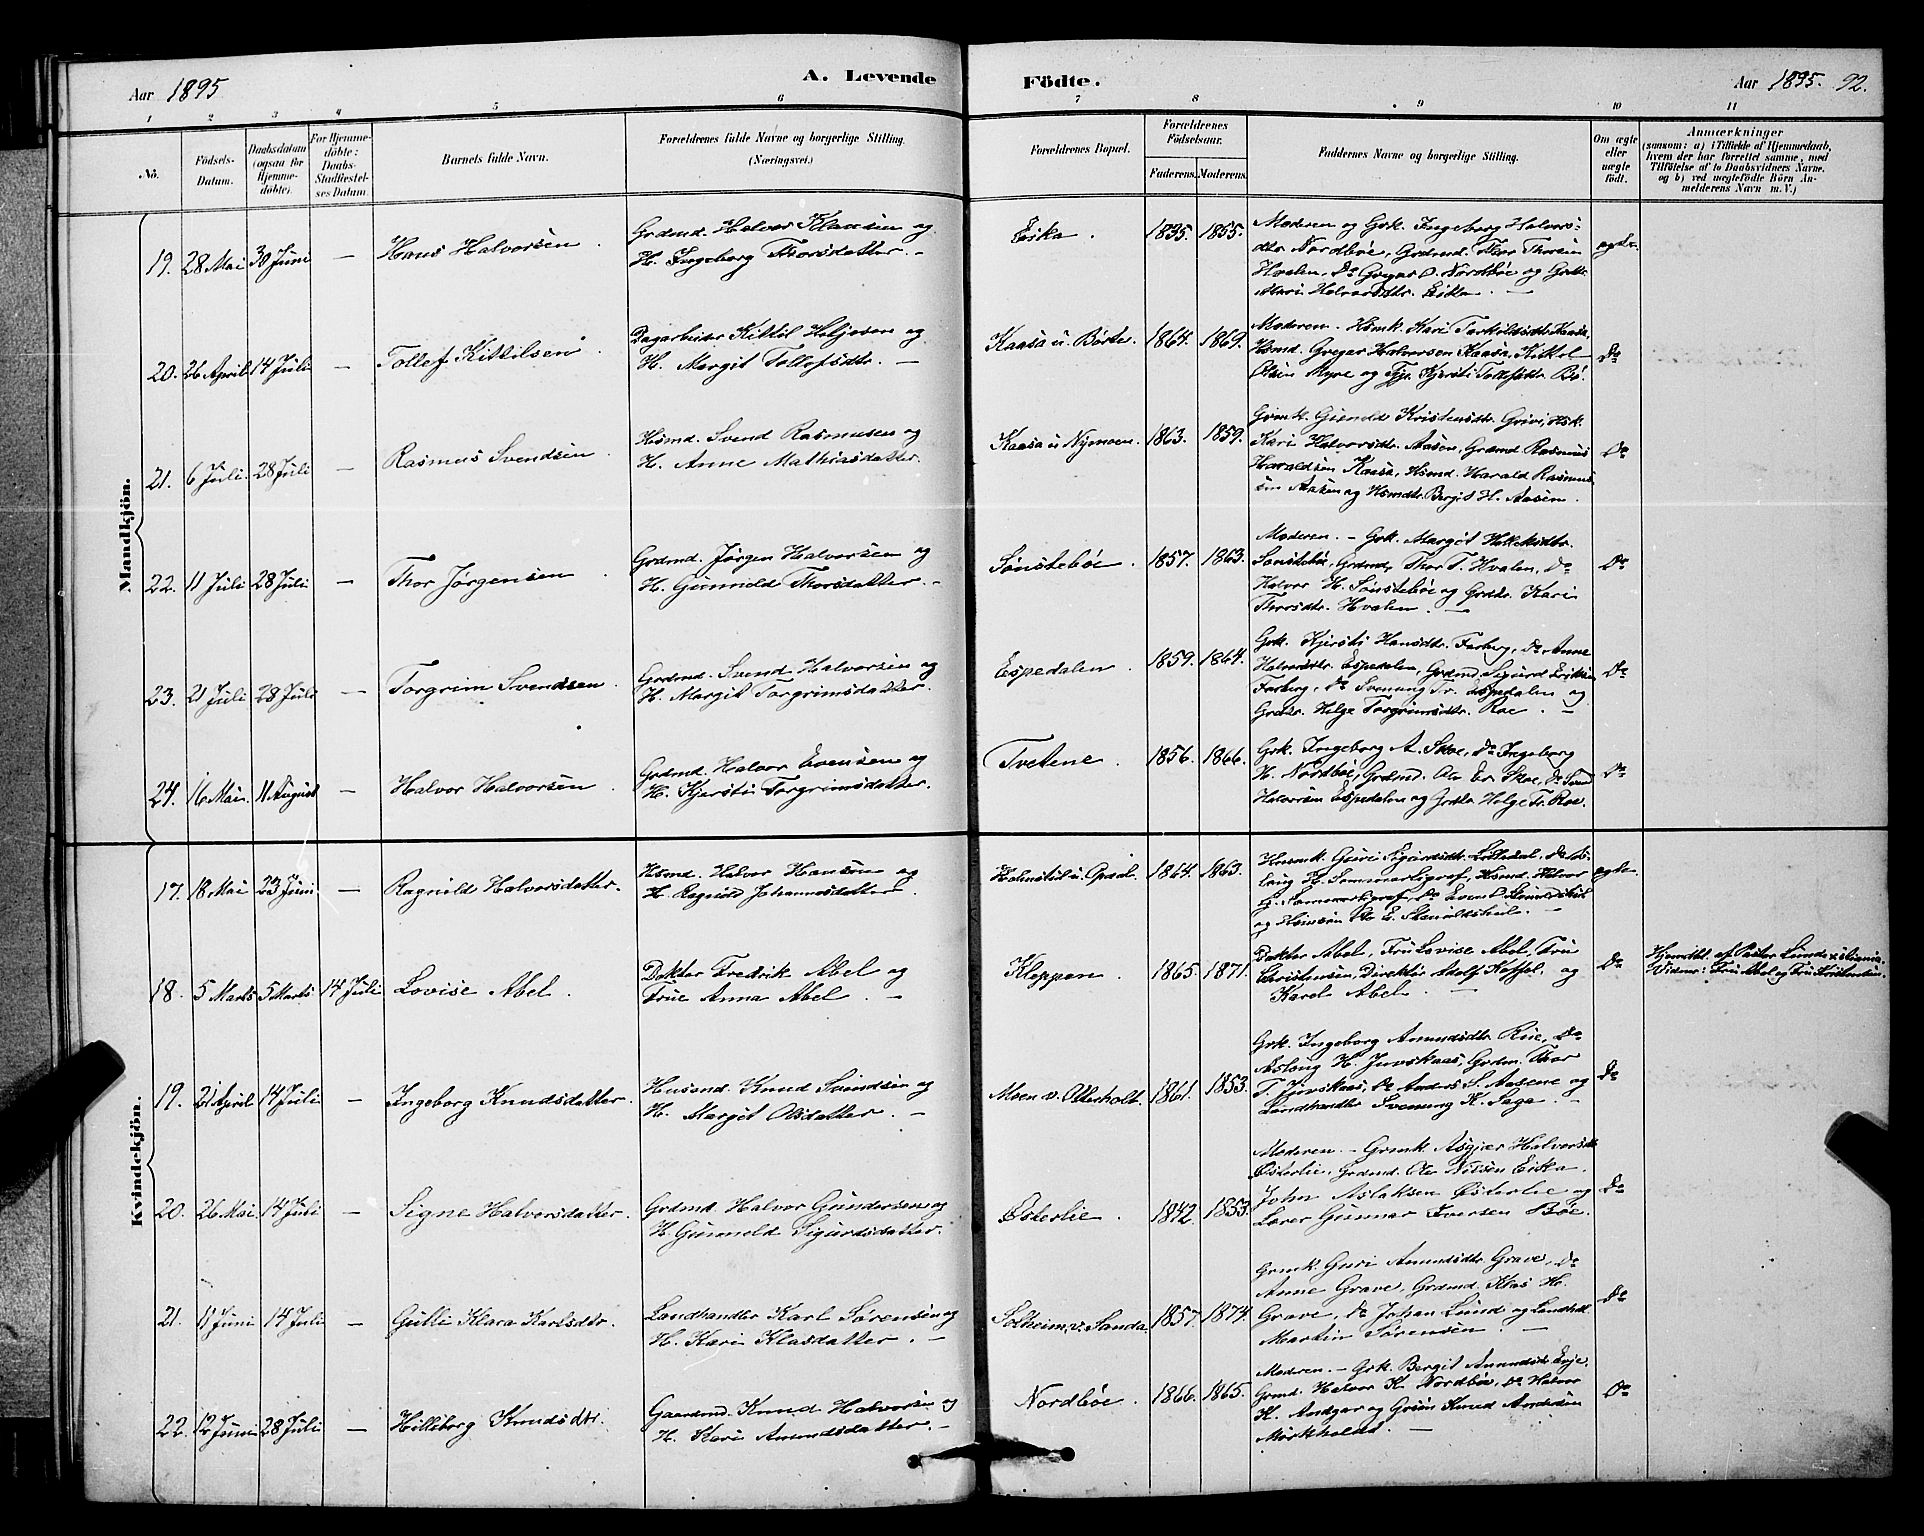 Aar 1895
A. Levende
Födte.
Aar 1895. 92.
1 2 3 4 5 6 7 8 9 10 11
No.
Födsels-Datum.
Daabsdatum (ogsaa for Hjemme-döbte).
For Hjemme-döbte: Daabs-Stadfæstel-ses Datum.
Barnets fulde Navn.
Forældrenes fulde Navne og borgerlige Stilling. (Næringsvei.)
Forældrenes Bopæl.
Forældrenes Födselsaar.
Faderens. Moderens.
Faddernes Navne og borgerlige Stilling.
Om ægte eller uægte født.
Anmærkninger
(saasom: a) i Tilfælde af Hjemmedaab, hvem der har forrettet samme, med Tilföielse af to Daabsvidners Navne, og b) ved uægtefödte Börn An-melderens Navn m. V.)
Mandkjön.
19. 28 Mai 30 Juni — Hans Halvorsen.
Grdmd. Halvor Klausen og
H. Ingeborg Thorsdatter. —
Eika. 1835. 1855.
Moderen og Grk. Ingeborg Halvors-
dtr. Nordbøe, Grdmd. Thor Thorsen
Hvalen, Do Gregar O. Nordbøe og Grdtr.
Mari Halvorsdtr. Eika. —
ægte.
20. 26 April 14 Juli — Tollef Kittilsen.
Dagarbeider Kittil Heljesen og
H. Margit Tollefsdtr. —
Kaasa u. Børte. 1864. 1869.
Moderen. Hsmk. Kari Torkildsdtr. Kaasa,
Hsmd. Gregar Halvorsen Kaasa, Kittil
Olsen Myre og Kjersti Tollefsdtr. Bö.
Do
21. 6 Juli. 28 Juli — Rasmus Svendsen.
Hsmd. Svend Rasmusen og
H. Anne Mathiasdatter.
Kaasa u. Nymoen. 1863. 1859.
Kristensdtr. Grivi, Hsk.
Kari Halvorsdtr. Aasen, Grdmd. Rasmus
Haraldsen Kaasa, Hsmd. Harald Rasmus
sen Aasen og Hsmdtr. Bergit H. Aasen.
Do
22. 11 Juli 28 Juli — Thor Jørgensen.
Grdmd. Jørgen Halvorsen og
H. Gunnild Thorsdatter. —
Sønstebøe. 1857. 1863.
Moderen. — Grk. Margit
Sønstebøe, Grdmd. Thor T. Hvalen, Do
Halvor H. Sønstebøe og Grdtr. Kari
Thorsdtr. Hvalen. —
Do
23. 21 Juli 28 Juli — Torgrim Svendsen.
Grdmd. Svend Halvorsen og
H. Margit Torgrimsdatter.
Espedalen. 1859. 1864.
Grk. Kjersti Hansdtr. Farberg, Do Anne
Halvorsdtr. Espedalen, Grdmd. Sigurd Eriksen
Farberg, Do Svenung Tr. Espedalen og
Grdtr. Helge Torgrimsdtr. Roe. —
Do
24. 16 Mai. 11 August — Halvor Halvorsen.
Grdmd. Halvor Evensen og
H. Kjersti Torgrimsdatter.
Tvetene. 1856. 1866.
Grk. Ingeborg A. Skoe, Do Ingeborg
H. Nordbøe, Grdmd. Ole Er. Skoe, Do Svend
Halvorsen Espedalen og Grdtr. Helge Tr. Roe.
Do
Kvindekjön.
17. 18 Mai 23 Juni — Ragnild Halvorsdatter.
Hsmd. Halvor Hansen og
H. Ragnild Johannesdatter.
1864. 1863.
Guri Sigurdsdtr.
laug H. Sommerligrøf, Hsmd. Halvor
ægte
18. 5 Marts 5 Marts 14 Juli Lovise Abel.
Doktor Fredrik Abel og
Frue Anna Abel. —
Kleppen. 1865. 1871.
Doktor Abel, Fru Lovise Abel, Fru
Christensen, Direktör Adolf og
Karel Abel. —
Do
Hjemdbt. af Pastor Lunde
Vidner: Fru Abel og Fru Kristensen.
19. 21 April 14 Juli — Ingeborg Knudsdatter.
Husmd. Knud Svendsen og
H. Margit Olsdatter. —
Moen v. Otterholt. 1861. 1853.
Grk. Ingeborg Amundsdtr. Rue, Do
Aslaug H. Juvskaas, Grdm. Thor
T. Juvskaas, Do Anders S. Aasene og
Landhandler Svenung K. Sage. —
Do
20. 26 Mai 14 Juli — Signe Halvorsdatter.
Grdmd. Halvor Gundersen og
H. Gunneld Sigurdsdatter.
Østerlie. 1842. 1853.
Moderen. — Grmk. Asgjær Halvorsdtr.
Østerlie, Grdmd. Ole Nilsen Eika.
John Aslaksen Østerlie og
Lærer Gunnar Iversen Bøe.
Do
21. 11 Juni 14 Juli — Gulli Klara Karlsdtr.
Landhandler Karl Sørensen og
H. Kari Klasdatter. —
Solheim, v. Sanda. 1857. 1874.
Grmk. Guri Amundsdtr. Grave, Do
Anne Grave, Grdmd. Klas H.
Grave, Do Johan Lund og Landhdl.
Martin Sørensen. —
Do
22. 12 Juni 28 Juli — Hilleborg Knudsdtr.
Gaardmd. Knud Halvorsen og
H. Kari Amundsdatter. —
Nordbøe. 1866. 1865.
Moderen. — Grk. Bergit Amundsdtr.
Grmd. Halvor K. Nordbøe, Do Halvor
H. og Knud Andersen